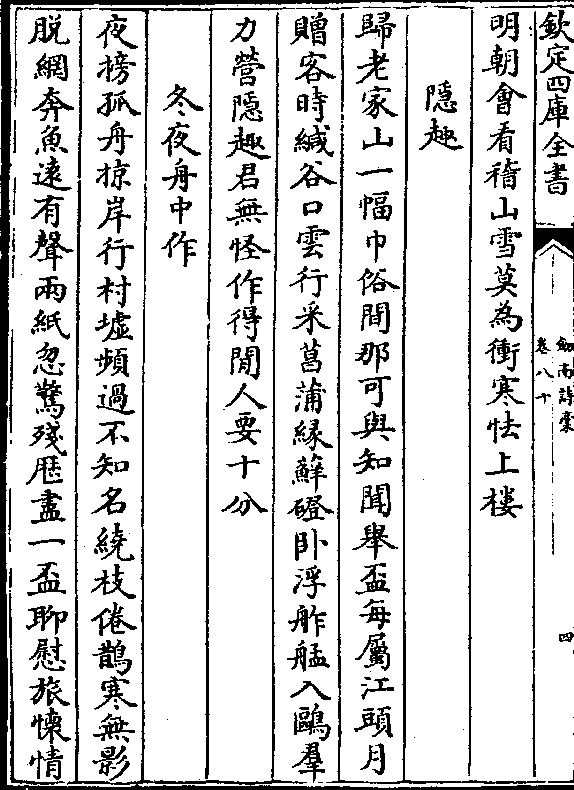 欽定四庫全書
劒南詩稾
卷八十
四
明朝會看稽山雪莫為衝寒怯上樓
隱趣
歸老家山一幅巾俗間那可與知聞舉盃每屬江頭月
贈客時緘谷口雲行采菖蒲緣蘚磴卧浮舴艋入鷗羣
力營隱趣君無怪作得閒人要十分
冬夜舟中作
夜搒孤舟掠岸行村墟頻過不知名繞枝倦鵲寒無影
脱網奔魚遠有聲兩紙忽驚殘厯盡一盃聊慰旅懐情